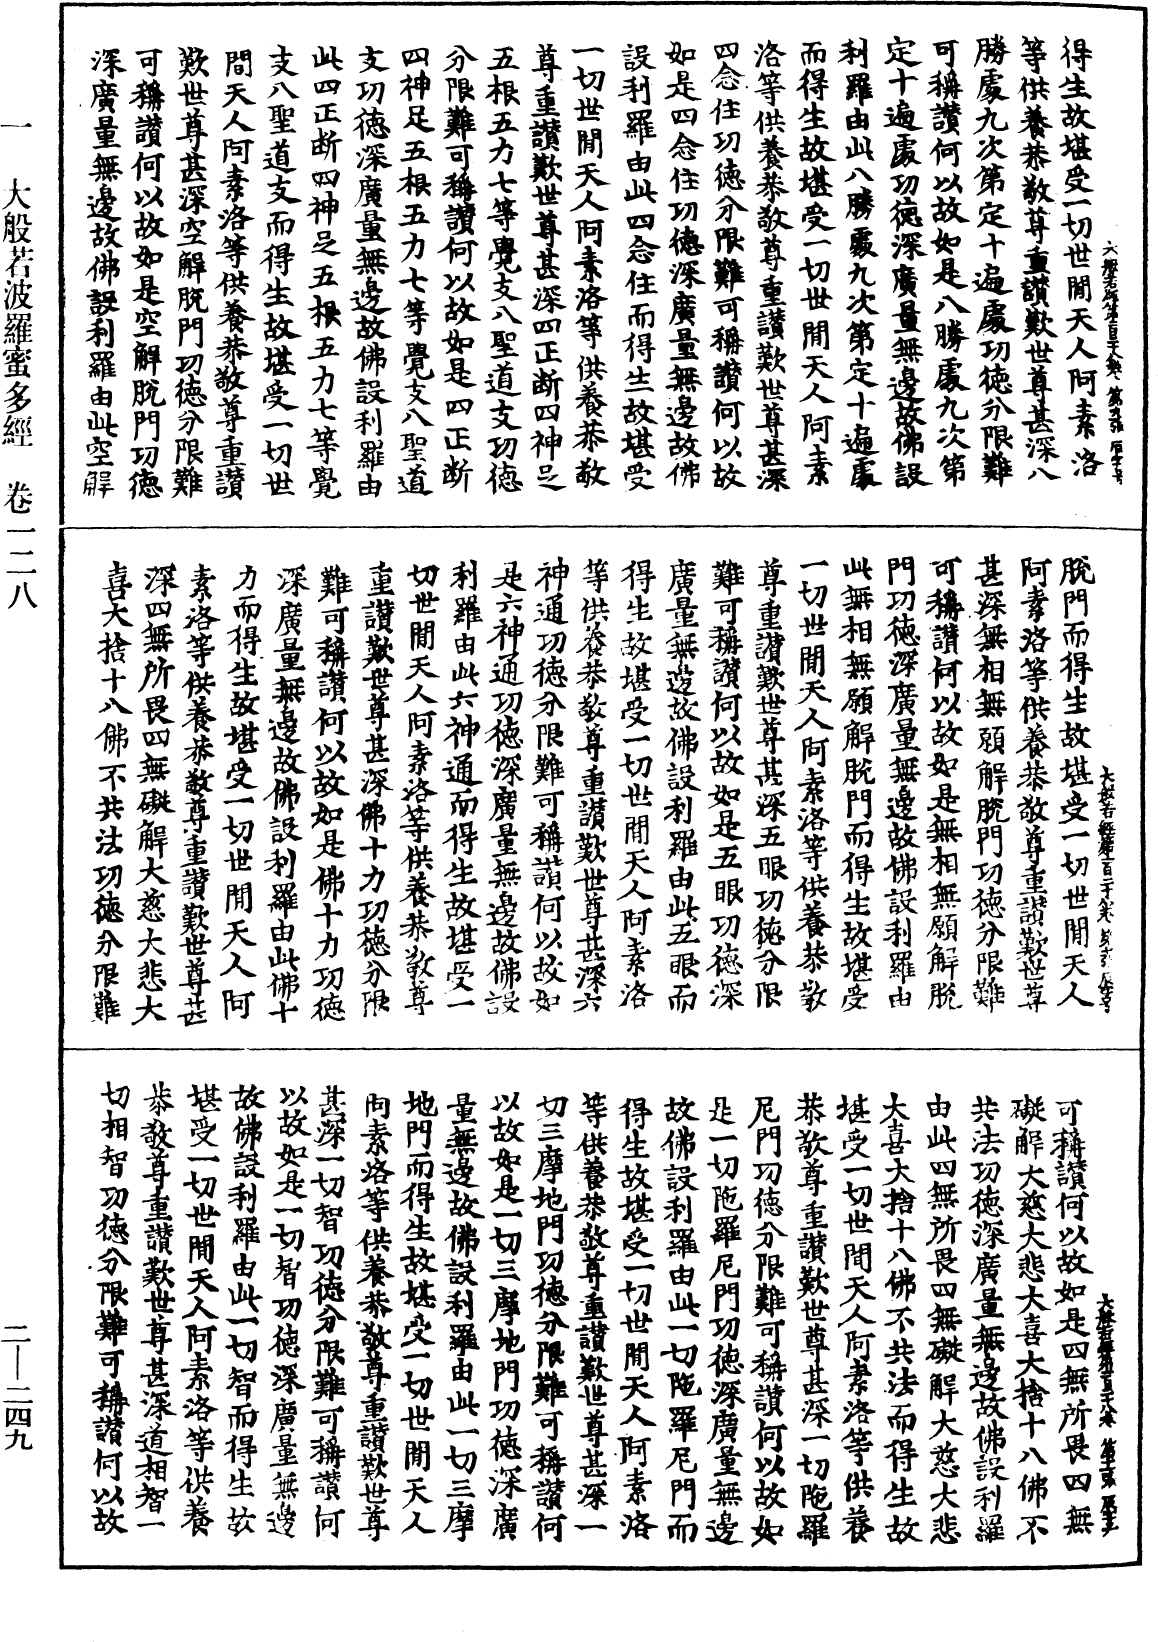 得生故堪受一切世間天人阿素洛
等供養恭敬尊重讚歎世尊甚深八
勝處九次第定十遍處功德分限難
可稱讚何以故如是八勝處九次第
定十遍處功德深廣量無邊故佛設
利羅由此八勝處九次第定十遍處
而得生故堪受一切世間天人阿素
洛等供養恭敬尊重讚歎世尊甚深
四念住功德分限難可稱讚何以故
如是四念住功德深廣量無邊故佛
設利羅由此四念住而得生故堪受
一切世間天人阿素洛等供養恭敬
尊重讚歎世尊甚深四正断四神足
五根五力七等覺支八聖道支功德
分限難可稱讚何以故如是四正断
四神足五根五力七等覺支八聖道
支功德深廣量無邊故佛設利羅由
此四正断四神足五根五力七等覺
支八聖道支而得生故堪受一切世
間天人阿素洛等供養恭敬尊重讚
歎世尊甚深空解脫門功德分限難
可稱讚何以故如是空解脫門功德
深廣量無邊故佛設利羅由此空解
脫門而得生故堪受一切世間天人
阿素洛等供養恭敬尊重讚歎世尊
甚深無相無願解脫門功德分限難
可稱讚何以故如是無相無願解脫
門功德深廣量無邊故佛設利羅由
此無相無願解脫門而得生故堪受
一切世間天人阿素洛等供養恭敬
尊重讚歎世尊甚深五眼功德分限
難可稱讚何以故如是五眼功德深
廣量無邊故佛設利羅由此五眼而
得生故堪受一切世間天人阿素洛
等供養恭敬尊重讚歎世尊甚深六
神通功德分限難可稱讚何以故如
是六神通功德深廣量無邊故佛設
利羅由此六神通而得生故堪受一
切世間天人阿素洛等供養恭敬尊
重讚歎世尊甚深佛十力功德分限
難可稱讚何以故如是佛十力功德
深廣量無邊故佛設利羅由此佛十
力而得生故堪受一切世間天人阿
素洛等供養恭敬尊重讚歎世尊甚
深四無所畏四無礙解大慈大悲大
喜大捨十八佛不共法功德分限難
可稱讚何以故如是四無所畏四無
礙解大慈大悲大喜大捨十八佛不
共法功德深廣量無邊故佛設利羅
由此四無所畏四無礙解大慈大悲
大喜大捨十八佛不共法而得生故
堪受一切世間天人阿素洛等供養
恭敬尊重讚歎世尊甚深一切陁羅
尼門功德分限難可稱讚何以故如
是一切陁羅尼門功德深廣量無邊
故佛設利羅由此一切陁羅尼門而
得生故堪受一切世間天人阿素洛
等供養恭敬尊重讚歎世尊甚深一
切三摩地門功德分限難可稱讚何
以故如是一切三摩地門功德深廣
量無邊故佛設利羅由此一切三摩
地門而得生故堪受一切世間天人
阿素洛等供養恭敬尊重讚歎世尊
甚深一切智功德分限難可稱讚何
以故如是一切智功德深廣量無邊
故佛設利羅由此一切智而得生故
堪受一切世間天人阿素洛等供養
恭敬尊重讚歎世尊甚深道相智一
切相智功德分限難可稱讚何以故
一 大般若波羅蜜多經 卷一二八
二—二四九